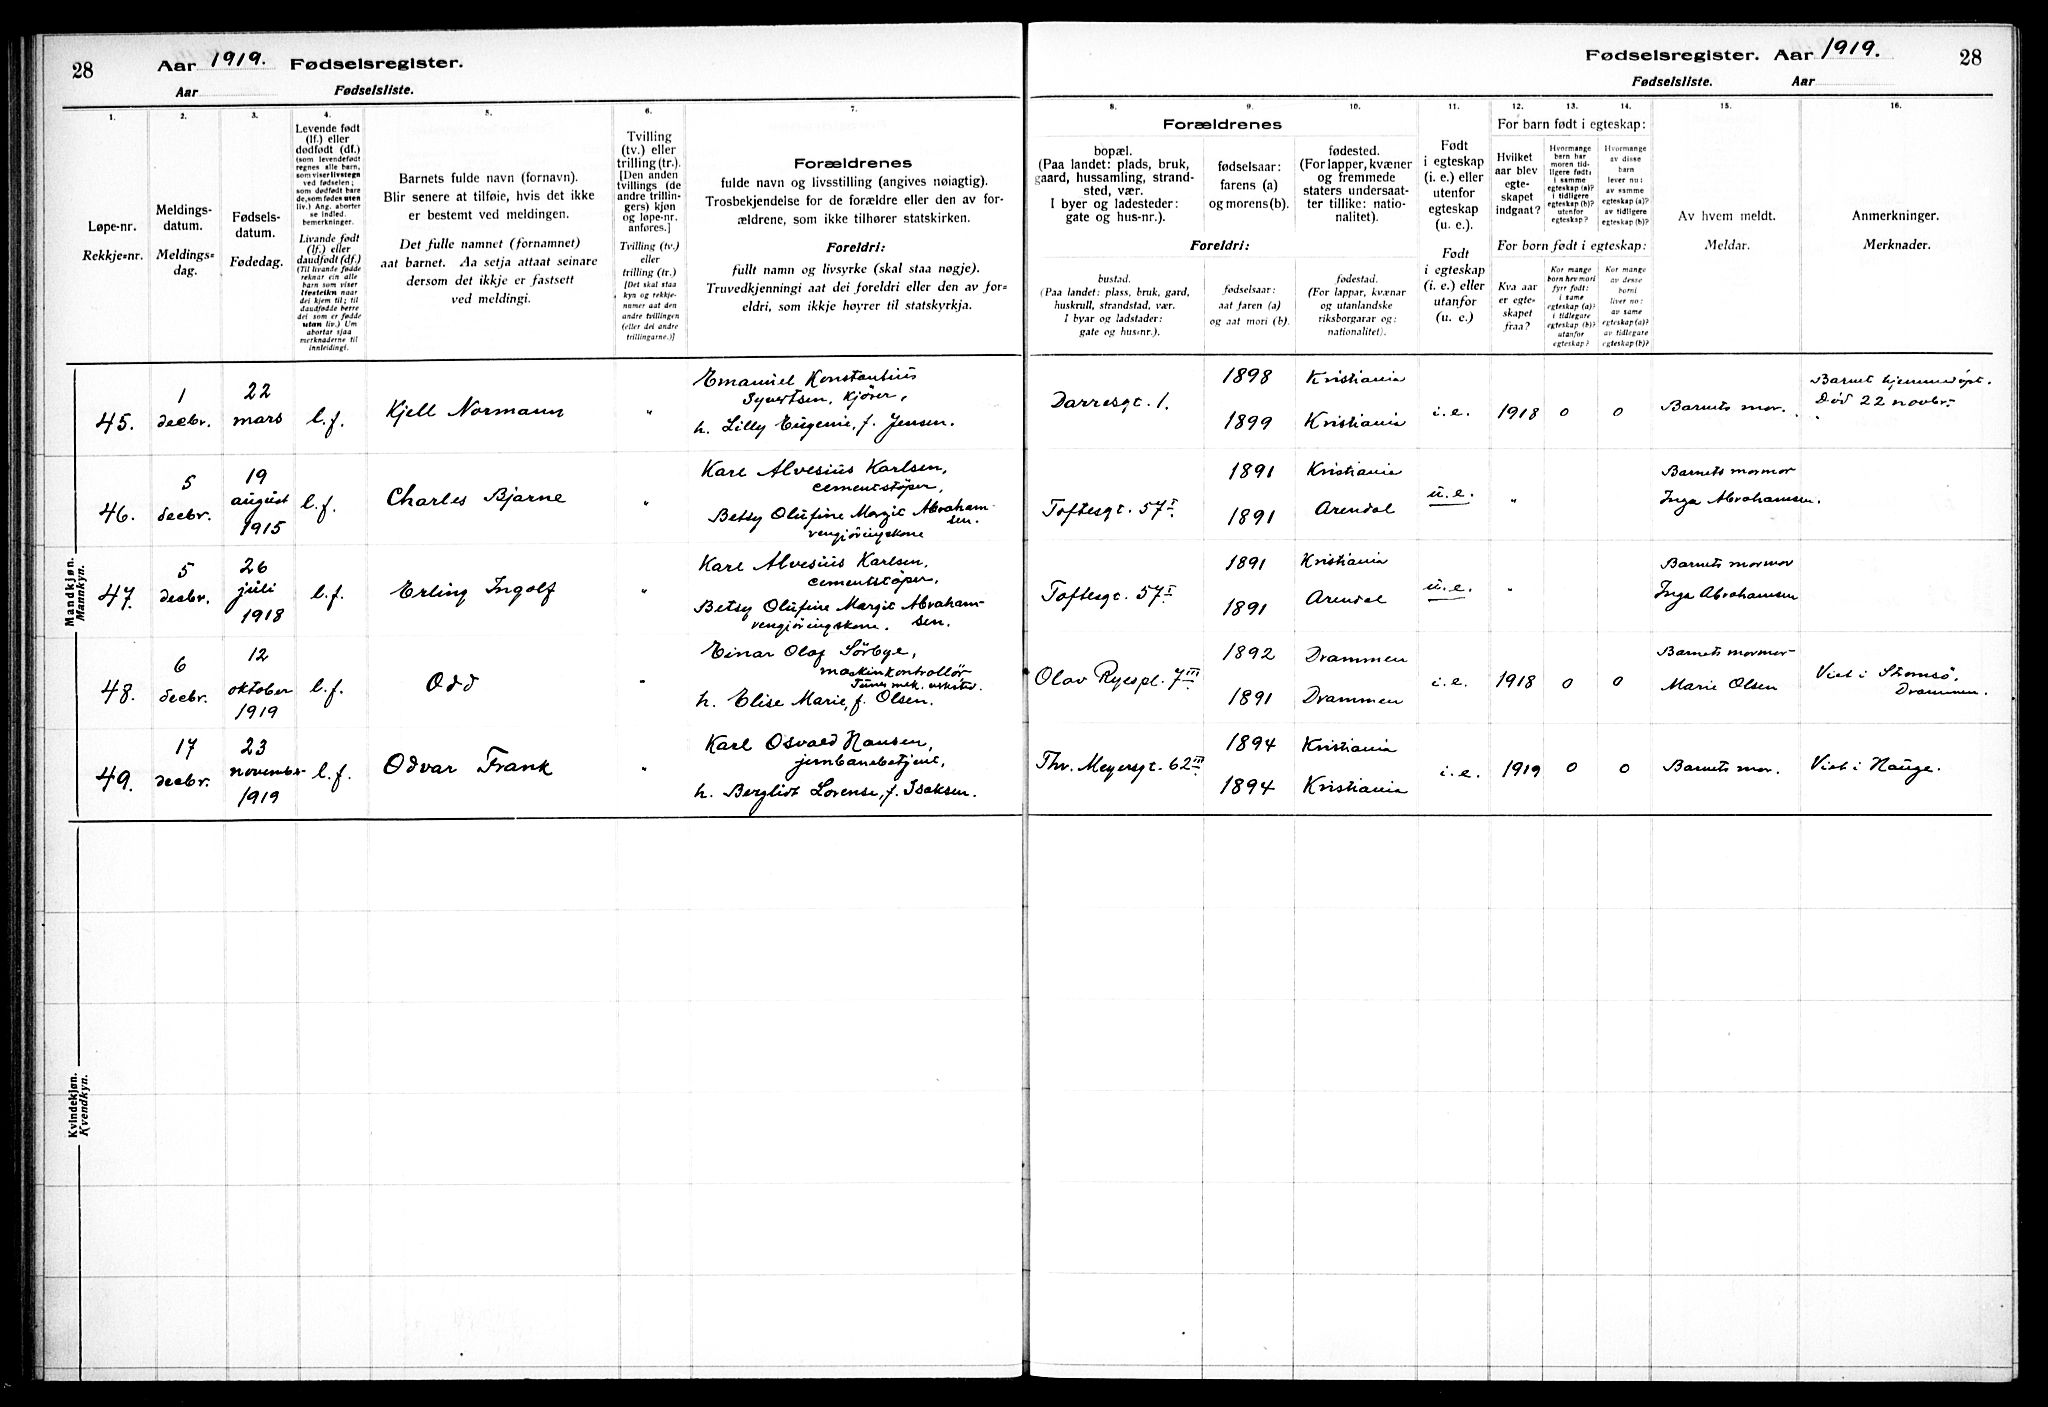 28
Aar 1919. Fødselsregister.
Aar Fødselsliste.
1.
2.
3.
4.
5.
6.
7.
Løpe-nr.
Rekkje=nr.
Meldings-
datum.
Meldings=
dag.
Fødsels-
datum.
Fødedag.
Levende født
(lf.) eller
dødfødt (df.)
(som levendefødt
regnes alle barn,
som viser livstegn
ved fødselen;
som dødfødt bare
de, som fødes uten
liv.) Ang. aborter
se indled.
bemerkninger.
Livande født
(lf.) eller
daudfødt (df.)
(Til livande fødde
reknar ein alle
barn som viser
livsteikn naar
dei kjem til; til
daudfødde berre
dei som er fødde
utan liv.) Um
abortar sjaa
merknaderne til
innleidingi.
Barnets fulde navn (fornavn).
Blir senere at tilføie, hvis det ikke
er bestemt ved meldingen.
Det fulle namnet (fornamnet)
aat barnet. Aa setja attaat seinare
dersom det ikkje er fastsett
ved meldingi.
Tvilling
(tv.) eller
trilling (tr.)
[Den anden
tvillings (de
andre trillin-
gers) kjøn
og løpe-nr.
anføres.]
Tvilling (tv.)
eller
trilling (tr.)
[Det skal staa
kyn og rekkje-
numer aat den
andre tvillingen
(eller dei andre
trillingarne.)]
Forældrenes
fulde navn og livsstilling (angives nøiagtig).
Trosbekjendelse for de forældre eller den av for-
ældrene, som ikke tilhører statskirken.
Foreldri:
fullt namn og livsyrke (skal staa nøgje).
Truvedkjenningi aat dei foreldri eller den av for=
eldri, som ikkje høyrer til statskyrkja.
Mandkjøn.
Mannkyn.
45.
1
decbr.
22
mars
l.f.
Kjell Normann
"
Emanuel Konstantius
Syvertsen, kjører,
h. Lilly Eugenie, f. Jensen.
46.
5
decbr.
19
august
1915
l.f.
Charles Bjarne
"
Karl Alvesius Karlsen,
cementstøper,
Betsy Olufine Margit Abraham-
sen.
rengjøringskone
47.
5
decbr.
26
juli
1918
l.f.
Erling Ingolf
"
Karl Alvesius Karlsen,
cementstøper,
Betsy Olufine Margit Abraham-
rengjøringskone. sen.
48.
6
decbr.
12
oktober
1919
l.f.
Odd
"
Einar Olaf Sørbye,
maskinkontrollør
mek. verksted.
h. Elise Marie, f. Olsen.
49.
17
decbr.
23
november
1919
l.f.
Odvar Frank
"
Karl Osvald Hansen,
jernbanebetjent,
h. Bergliot Lovense, f. Isaksen.
Kvindekjøn.
Kvendkyn.
Fødselsregister. Aar 1919.
28
Fødselsliste. Aar
8.
9.
10.
11.
12.
13.
14.
15.
16.
Forældrenes
bopæl.
(Paa landet: plads, bruk,
gaard, hussamling, strand-
sted, vær.
I byer og ladesteder:
gate og hus-nr.).
fødselsaar:
farens (a)
og morens (b).
fødested.
(For lapper, kvæner
og fremmede
staters undersaat-
ter tillike: natio-
nalitet).
Foreldri:
bustad.
(Paa landet: plass, bruk, gard,
huskrull, strandstad, vær.
I byar og ladstader:
gate og hus-nr.).
fødselsaar:
aat faren (a)
og aat mori (b).
fødestad.
(For lappar, kvænar
og utanlandske
riksborgarar og:
nationalitet).
Født
i egteskap
(i. e.) eller
utenfor
egteskap
(u. e.).
Født
i egteskap
(i. e.) eller
utanfor
(u. e.)
For barn født i egteskap:
Hvilket
aar blev
egte-
skapet
indgaat?
Hvormange
barn har
moren tid-
ligere født:
i samme
egteskap (a)?
i tidligere
egteskap (b)?
utenfor
egteskap?
Hvormange
av disse
barn
lever nu:
av samme
egteskap (a)?
av tidligere
egteskap (b)?
For born født i egteskap:
Kva aar
er egte-
skapet
fraa?
Kor mange
born hev mori
fyrr født:
i same
egteskap (a)?
i tidlegare
egteskap (b)?
utanfor
egteskap?
Kor mange
av desse
borni
liver no:
av same
egteskap (a)?
av tidlegare
egteskap (b)?
Av hvem meldt.
Meldar.
Anmerkninger.
Merknader.
Darresgt. 1.
1898
1899
Kristiania
Kristiania
i.e.
1918
0
0
Barnets mor.
Barnet hjemmedøpt.
Død 22 novbr.
Toftesgt. 57 I
1891
1891
Kristiania
Arendal
u.e.
"
Barnets mormor
Inga Abrahamsen.
Toftesgt. 57 I
1891
1891
Kristiania
Arendal
u.e.
"
Barnets mormor
Inga Abrahamsen
Olav Ryespl. 7 III
1892
1891
Drammen
Drammen
i.e.
1918
0
0
Barnets mormor
Marie Olsen
Viet i Strømsø,
Drammen.
Thv. Meyersgt. 62 III
1894
1894
Kristiania
Kristiania
i.e.
1919
0
0
Barnets mor.
Viet i Hauge.